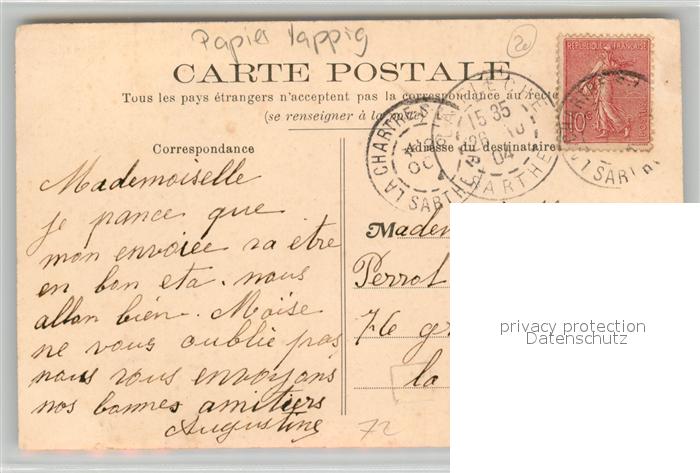 Papier lappig
20
CARTE POSTALE
Tous les pays étrangers n'acceptent pas la correspondance au recto
(se renseigner à la poste)
REPUBLIQUE FRANÇAISE
10c
LA CHARTRE S
LA SARTHE
15 35
26 10
04
SARTHE
Correspondance
Adresse du destinataire
Mademoiselle
je pance que
mon envoiée va être
en bon eta. nous
allon bien. Moise
ne vous oublie pas
nous vous envoyons
nos bonnes amitiers
Augustine
Madem
Perrot
76 gr
la
72
privacy protection
Datenschutz